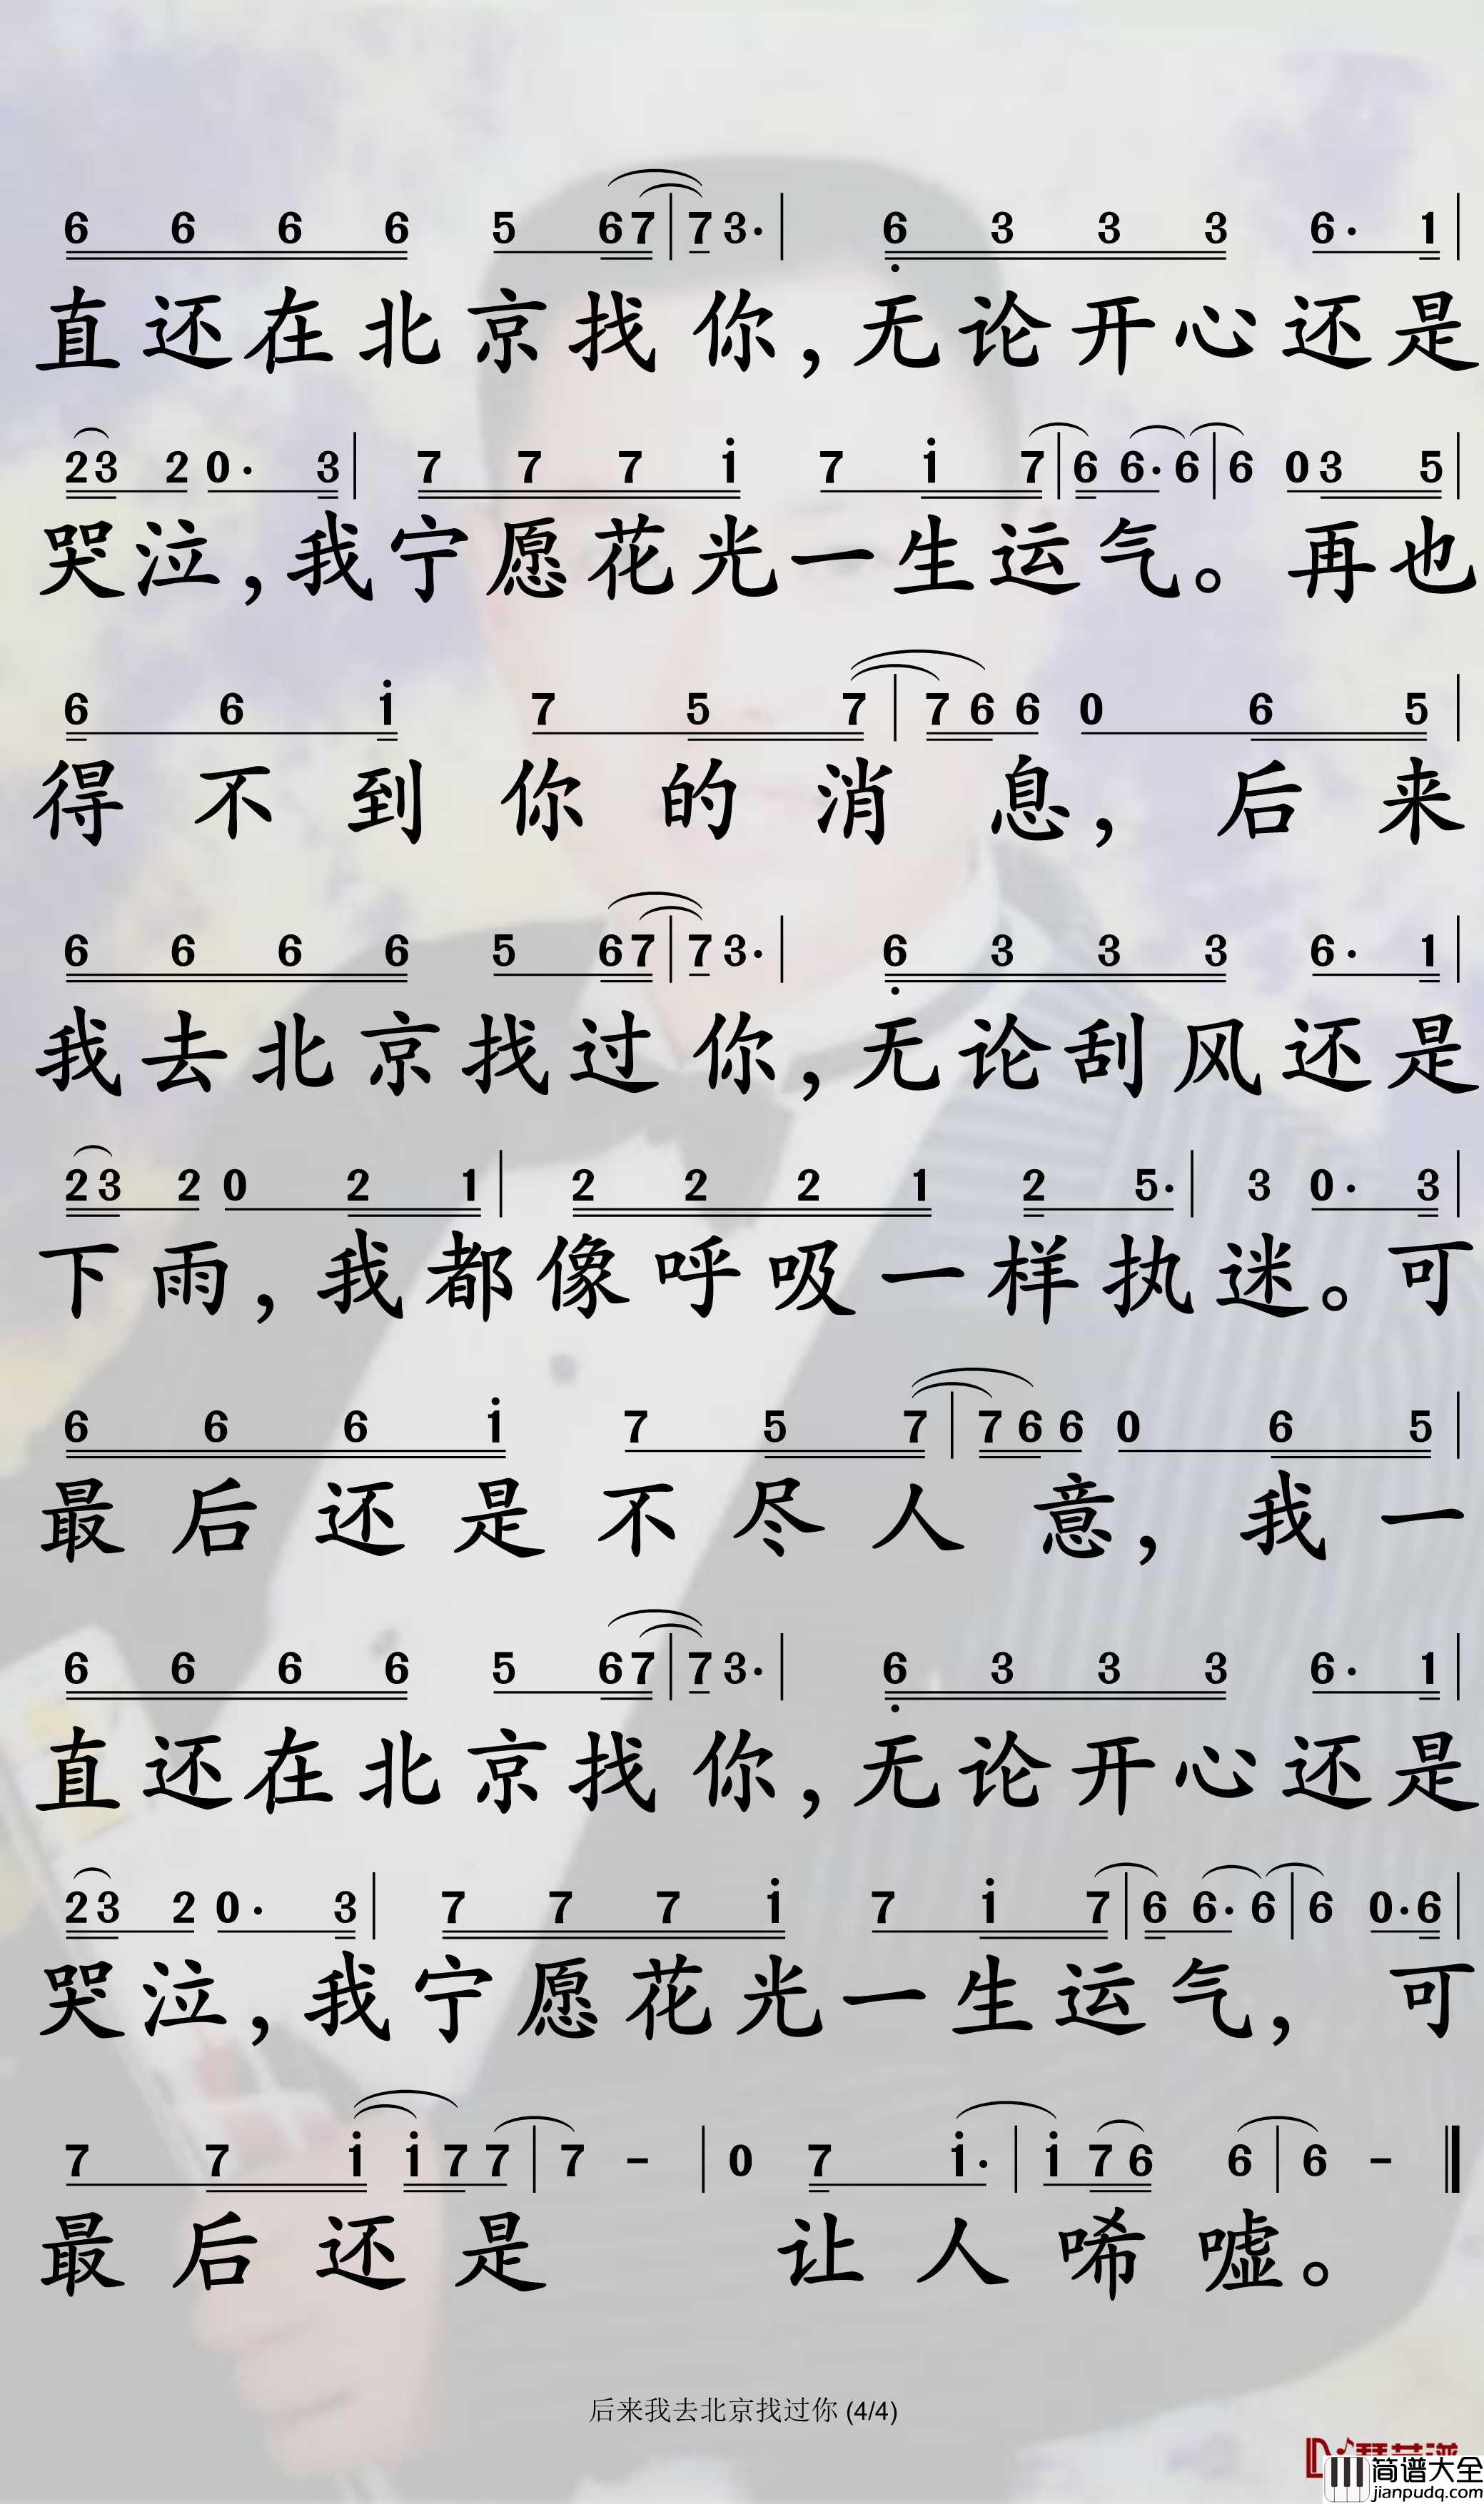 6 6 6 6 5 6 7 | 7 3· | 6 3 3 3 6· 1 |
直还在北京找你，无论开心还是
2 3 2 0· 3 | 7 7 7 i 7 i 7 | 6 6· 6 | 6 0 3 5 |
哭泣，我宁愿花光一生运气。再也
6 6 i 7 5 7 | 7 6 6 0 6 5 |
得不到你的消息，后来
6 6 6 6 5 6 7 | 7 3· | 6 3 3 3 6· 1 |
我去北京找过你，无论刮风还是
2 3 2 0 2 1 | 2 2 2 1 2 5· | 3 0· 3 |
下雨，我都像呼吸一样执迷。可
6 6 6 i 7 5 7 | 7 6 6 0 6 5 |
最后还是不尽人意，我一
6 6 6 6 5 6 7 | 7 3· | 6 3 3 3 6· 1 |
直还在北京找你，无论开心还是
2 3 2 0· 3 | 7 7 7 i 7 i 7 | 6 6· 6 | 6 0· 6 |
哭泣，我宁愿花光一生运气，可
7 7 i i 7 7 | 7 - | 0 7 i· | i 7 6 6 | 6 - ‖
最后还是让人唏嘘。
后来我去北京找过你 (4/4)
简谱大全
jianpudq.com